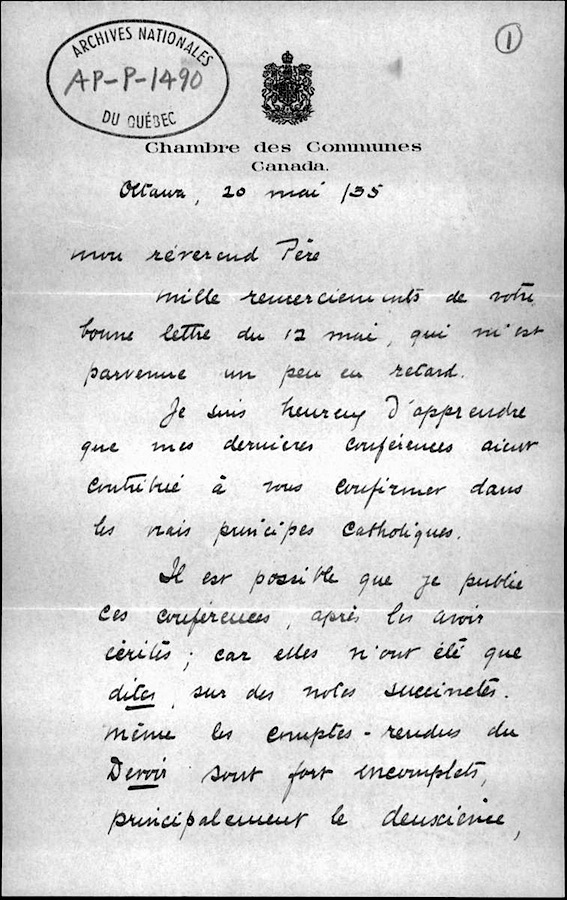 ARCHIVES NATIONALES
AP-P-1490
DU QUÉBEC
1
Chambre des Communes
Canada.
Ottawa, 20 mai /35
mon révérend Père
mille remerciements de votre
bonne lettre du 12 mai, qui m'est
parvenue un peu en retard.
Je suis heureux d'apprendre
que mes dernières conférences aient
contribué à vous confirmer dans
les vrais principes catholiques.
Il est possible que je publie
ces conférences, après les avoir
écrites; car elles n'ont été que
dites, sur des notes succinctes.
même les comptes-rendus du
Devoir sont fort incomplets,
principalement le deuxième,